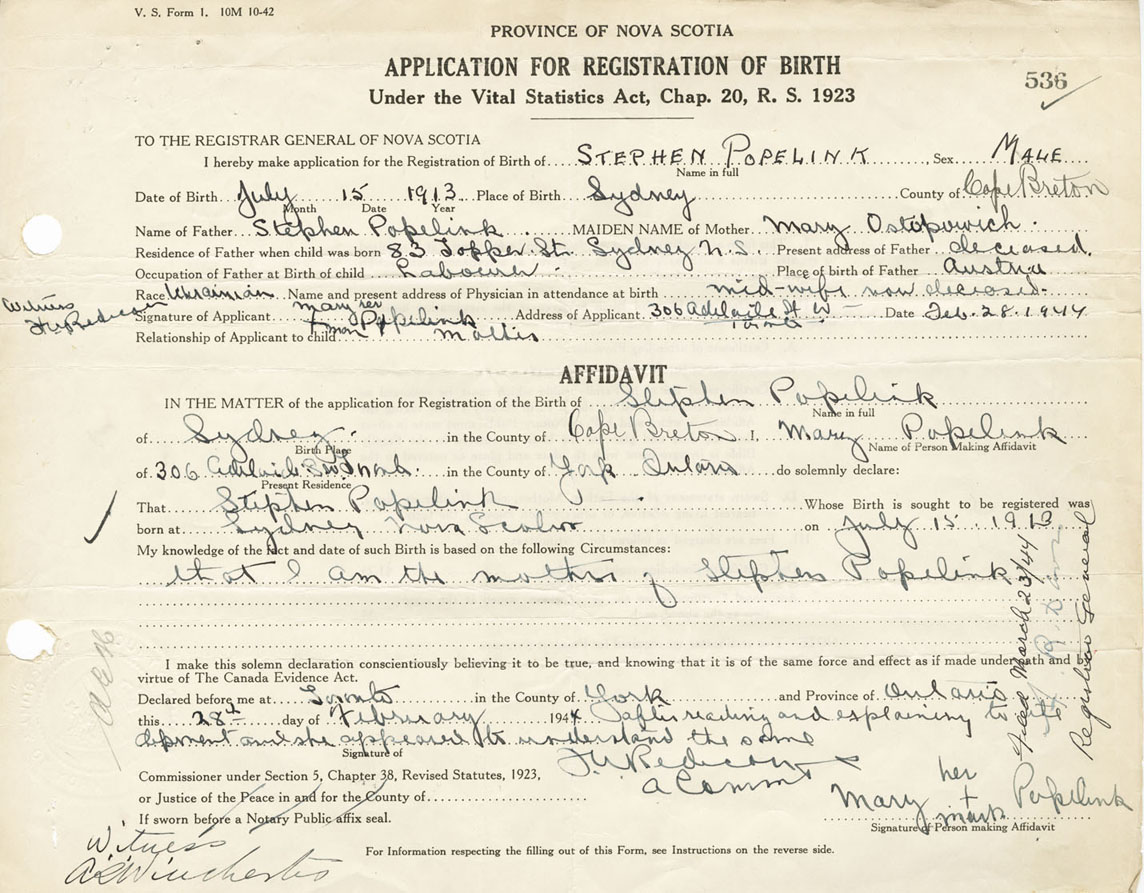 V. S. Form 1. 10M 10-42
PROVINCE OF NOVA SCOTIA
APPLICATION FOR REGISTRATION OF BIRTH
536
Under the Vital Statistics Act, Chap. 20, R. S. 1923
TO THE REGISTRAR GENERAL OF NOVA SCOTIA
I hereby make application for the Registration of Birth of STEPHEN POPELINK, Sex MALE
Name in full
Date of Birth July 15 1913 Place of Birth Sydney County of Cape Breton
Month Date Year
Name of Father Stephen Popelink MAIDEN NAME of Mother Mary Ostopowich
Residence of Father when child was born 83 Topper St. Sydney N.S. Present address of Father deceased
Occupation of Father at Birth of child Labourer Place of birth of Father Austria
Race Ukrainian Name and present address of Physician in attendance at birth mid-wife now deceased
Witness
Signature of Applicant Mary her + mark Popelink Address of Applicant 306 Adelaide St W Date Feb. 28. 1944
Relationship of Applicant to child Mother
AFFIDAVIT
IN THE MATTER of the application for Registration of the Birth of Stephen Popelink
Name in full
of Sydney in the County of Cape Breton I, Mary Popelink
Birth Place Name of Person Making Affidavit
of 306 Adelaide St W Toronto in the County of York Ontario do solemnly declare:
Present Residence
That Stephen Popelink Whose Birth is sought to be registered was
born at Sydney Nova Scotia on July 15 1913
My knowledge of the fact and date of such Birth is based on the following Circumstances:
that I am the mother of Stephen Popelink
I make this solemn declaration conscientiously believing it to be true, and knowing that it is of the same force and effect as if made under oath and by
virtue of The Canada Evidence Act.
Declared before me at Toronto in the County of York and Province of Ontario
this 28th day of February 1944 after reading and explaining to
deponent and she appeared to understand the same
Signature of
Commissioner under Section 5, Chapter 38, Revised Statutes, 1923,
A Comm
or Justice of the Peace in and for the County of
Mary her + mark Popelink
If sworn before a Notary Public affix seal.
Signature of Person making Affidavit
Witness
A. Winchester
For Information respecting the filling out of this Form, see Instructions on the reverse side.
Filed March 23/44
Registrar General